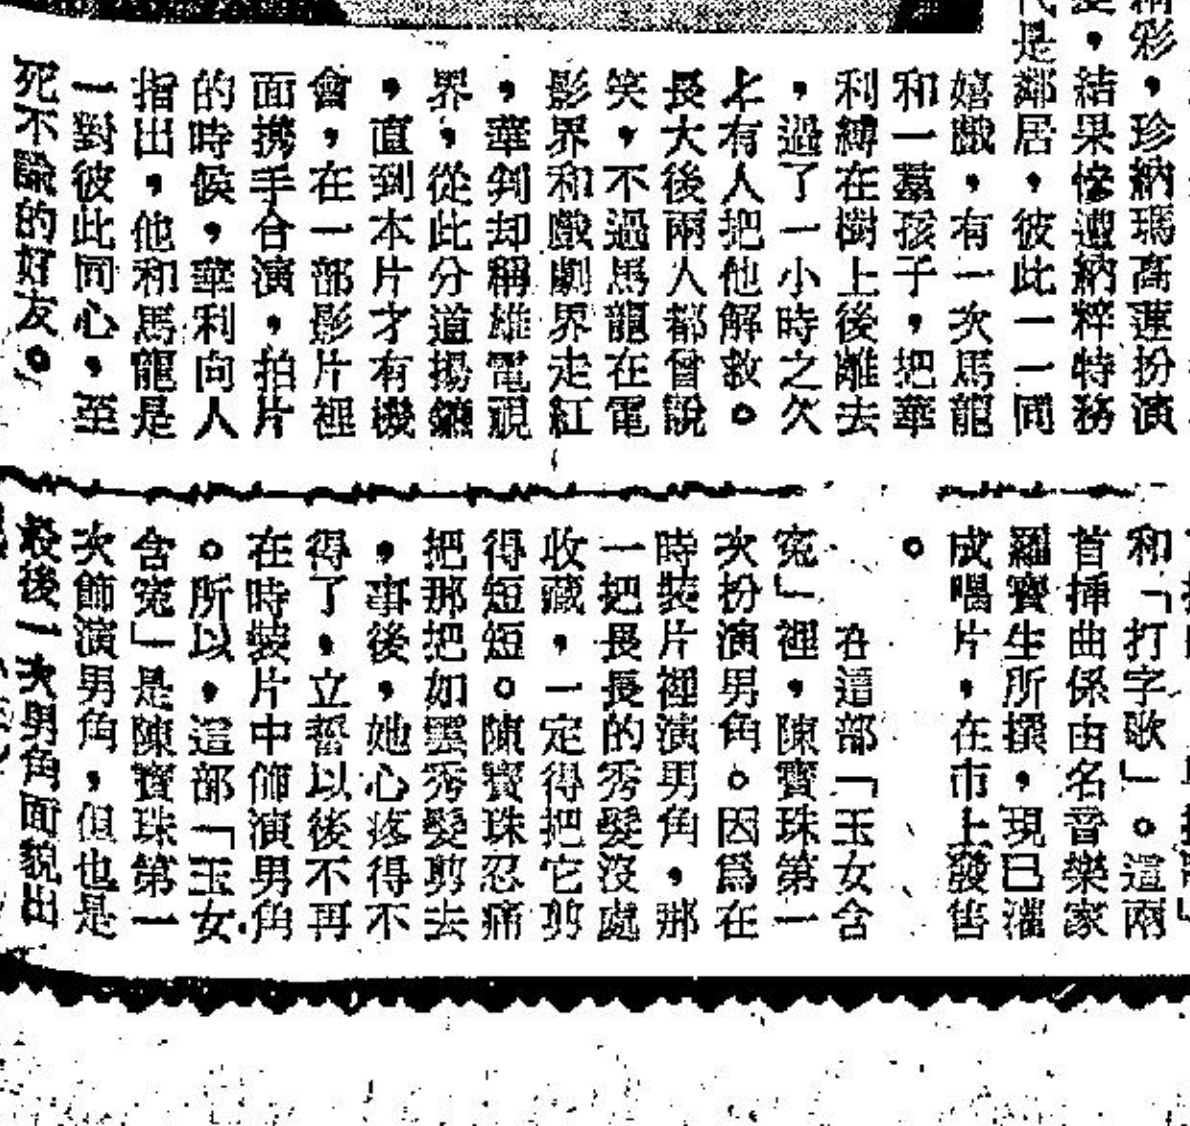 精彩，珍納瑪高蓮扮演
，結果慘遭納粹特務
代是鄰居，彼此一一同
嬉戲，有一次馬龍
和一羣孩子，把華
利縛在樹上後離去
，過了一小時之久
才有人把他解救。
長大後兩人都曾說
笑，不過馬龍在電
影界和戲劇界走紅
，華利却稱雄電視
界，從此分道揚鑣
，直到本片才有機
會，在一部影片裡
面携手合演，拍片
的時候，華利向人
指出，他和馬龍是
一對彼此同心，至
死不渝的好友。
和「打字歌」。這兩
首插曲係由名音樂家
羅寶生所撰，現已灌
成唱片，在市上發售
。
在這部「玉女含
寃」裡，陳寶珠第一
次扮演男角。因爲在
時裝片裡演男角，那
一把長長的秀髮沒處
收藏，一定得把它剪
得短短。陳寶珠忍痛
把那把如雲秀髮剪去
，事後，她心疼得不
得了，立誓以後不再
在時裝片中飾演男角
。所以，這部「玉女
含寃」是陳寶珠第一
次飾演男角，但也是
最後一次男角面貌出